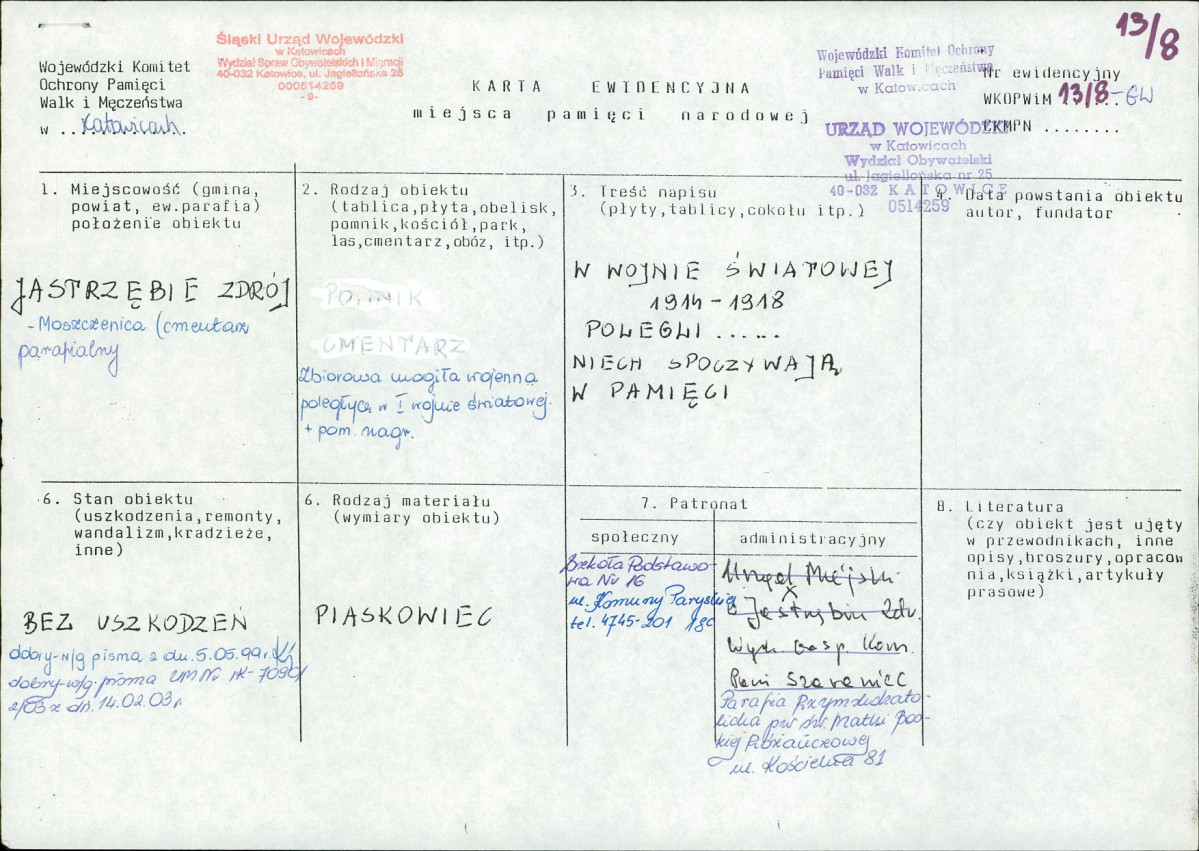 13/8
Śląski Urząd Wojewódzki
w Katowicach
Wydział Spraw Obywatelskich i Migracji
40-032 Katowice, ul. Jagiellońska 25
000514259
-9-
Wojewódzki Komitet
Ochrony Pamięci
Walk i Męczeństwa
w ..Katowicach.
KARTA EWIDENCYJNA
miejsca pamięci narodowej
Wojewódzki Komitet Ochrony
Pamięci Walk i Męczeństwa
w Katowicach
Nr ewidencyjny
WKOPWiM 13/8-GW
CKMPN ........
URZĄD WOJEWÓDZKI
w Katowicach
Wydział Obywatelski
ul. Jagiellońska nr 25
40-032 KATOWICE
0514259
1. Miejscowość (gmina,
powiat, ew.parafia)
położenie obiektu
JASTRZĘBIE ZDRÓJ
- Moszczenica (cmentarz
parafialny
2. Rodzaj obiektu
(tablica,płyta,obelisk,
pomnik,kościół,park,
las,cmentarz,obóz, itp.)
POMNIK
CMENTARZ
Zbiorowa mogiła wojenna
poległych w I wojnie światowej.
+ pom. nagr.
3. Treść napisu
(płyty,tablicy,cokołu itp.)
W WOJNIE ŚWIATOWEJ
1914-1918
POLEGLI ......
NIECH SPOCZYWAJĄ
W PAMIĘCI
4. Data powstania obiektu
autor, fundator
6. Stan obiektu
(uszkodzenia,remonty,
wandalizm,kradzieże,
inne)
BEZ USZKODZEŃ
dobry-w/g pisma z dn. 5.05.99r.
dobry-w/g. pisma UM Nr IK-7090/
2/03 z dn. 14.02.03r
6. Rodzaj materiału
(wymiary obiektu)
PIASKOWIEC
7. Patronat
społeczny
Szkoła Podstawo-
wa Nr 16
ul. Komuny Paryskiej
tel. 4745-201 18c
administracyjny
Urząd Miejski
w Jastrzębiu Zdr.
Wydz. Gosp. Kom.
Pani Szaraniec
Parafia Rzymskokato-
licka pw. św. Matki Bos-
kiej Różańcowej
ul. Kościelna 81
8. Literatura
(czy obiekt jest ujęty
w przewodnikach, inne
opisy,broszury,opracow
nia,książki,artykuły
prasowe)